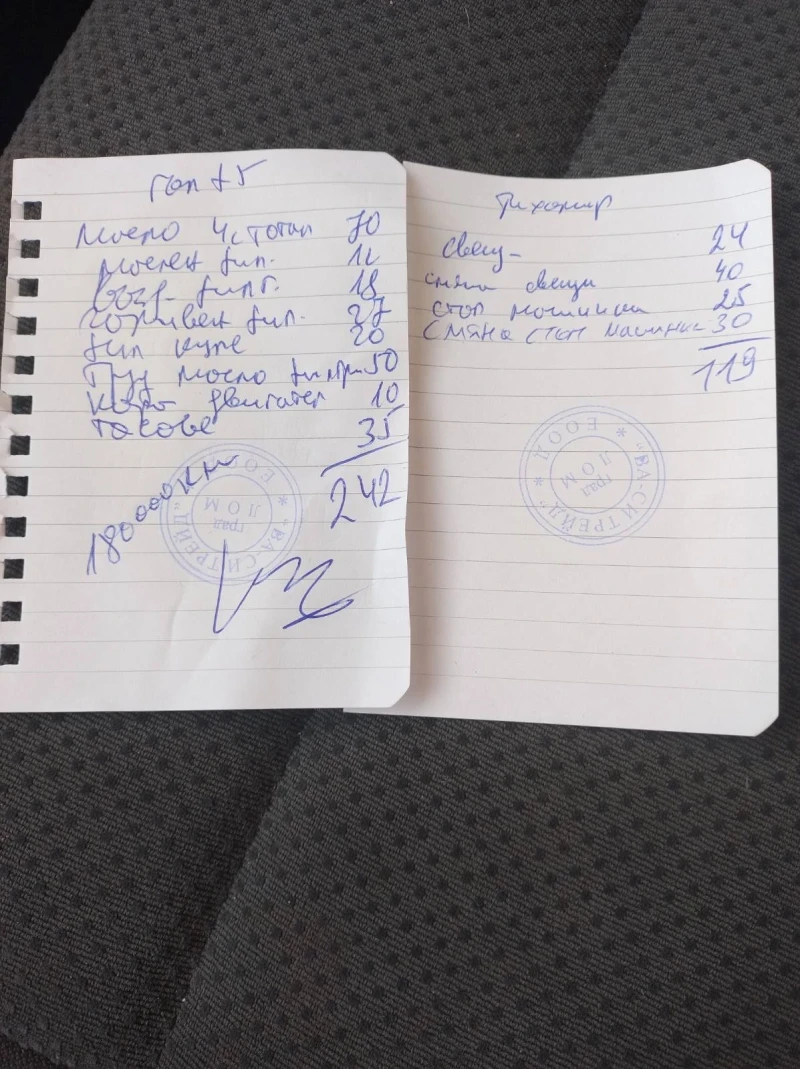 гол f 5
Масло 4, тотал 70
маслен фил. 12
Возд. филт. 18
горивен фил. 27
фил купе 20
Труд масло филтри 50
кора двигател 10
35
180000 км
242
"ВА-СИ ТРЕЙД" * ЕООД *
град
ЛОМ
Тихомир
свещ- 24
смяна свещи 40
стоп машинки 25
смяна стоп машинки 30
119
"ВА-СИ ТРЕЙД" * ЕООД *
град
ЛОМ